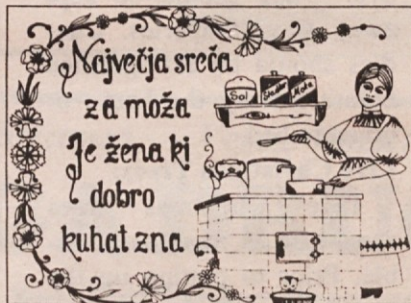 Največja sreča
za moža
Je žena ki
dobro
kuhat zna
Sol
Sladkor
Moka